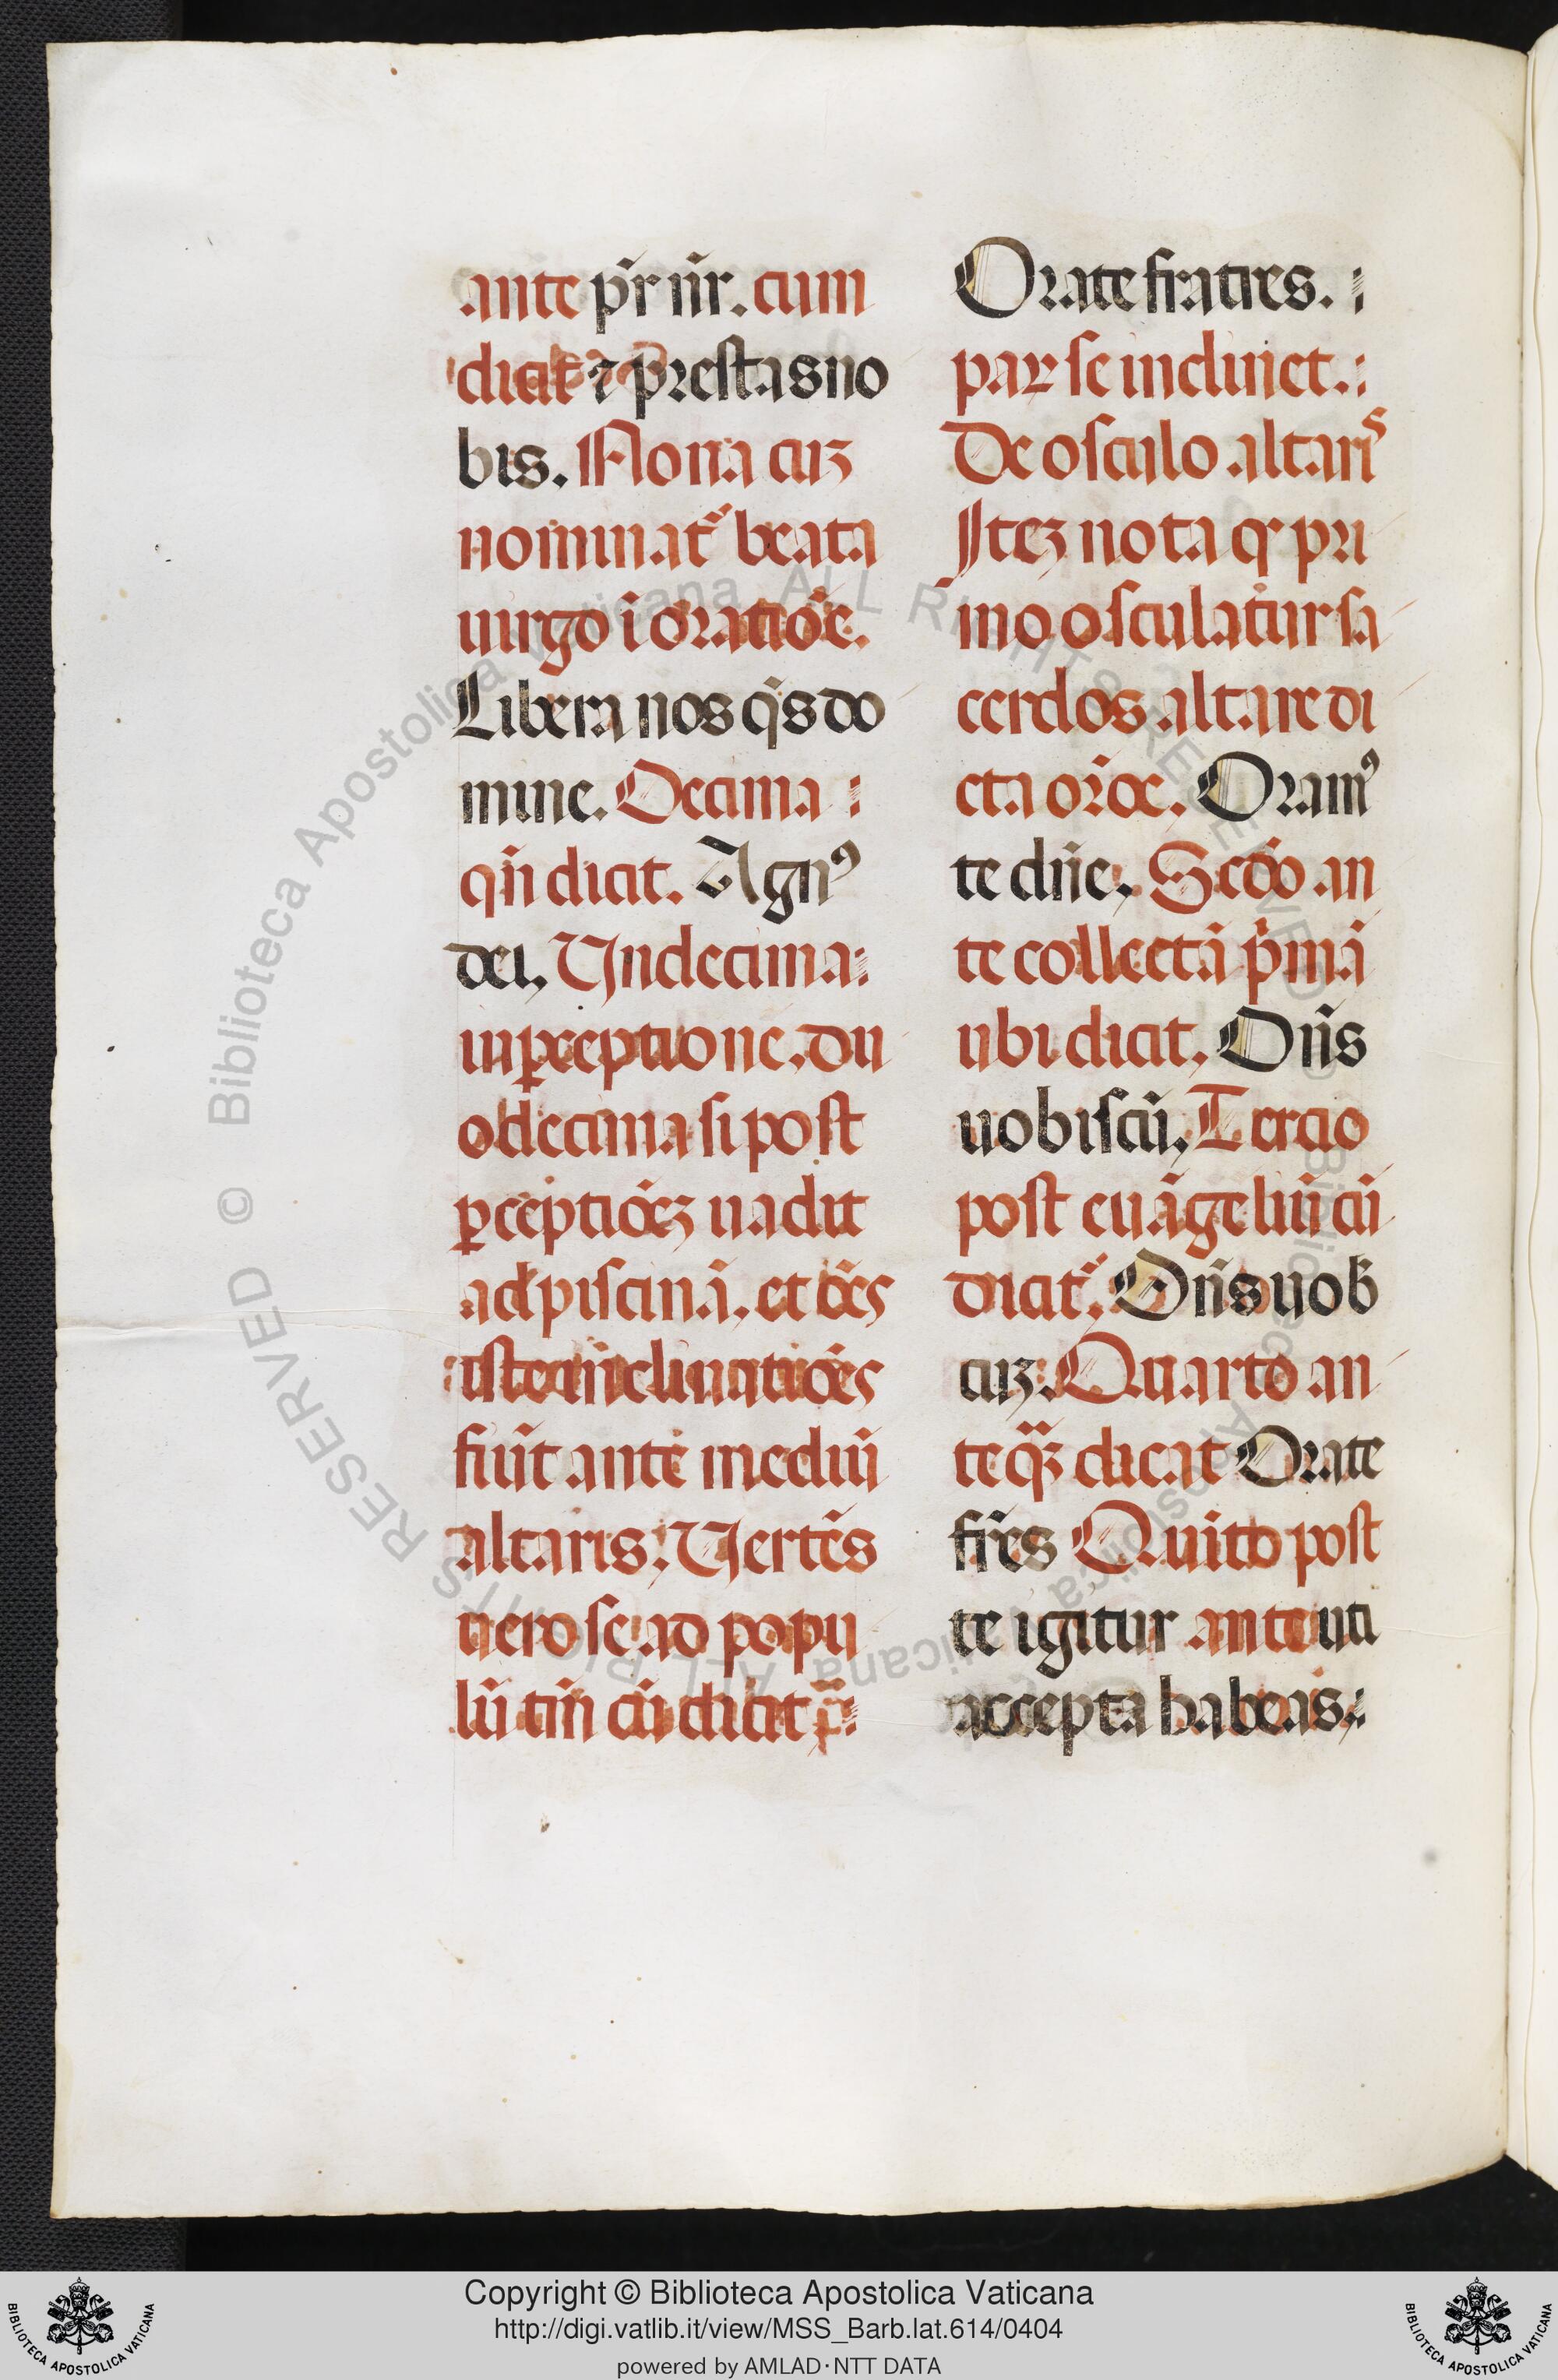 ante pr̄ nr̄. cum
dicit̄ ⁊ prestas no
bis. Nona cuꝫ
nominat᷑ beata
uirgo ī oratiōe.
Libera nos q̄s do
mine. Decima :
qn̄ dicit. Agnꝰ
dei, Undecima:
in ꝑceptione, du
odecima si post
ꝑceptiōeꝫ uadit
ad piscinā, et oēs
iste inclinatiōes
fiūt ante mediū
altaris: Uertēs
uero se ad popu
lū tn̄ cū dicit
Orate fratres. :
paꝝ se inclinet. :
De osculo altaris
Iteꝫ nota ꝙ pri
mo osculatur sa
cerdos altare di
cta or̄oe. Oramꝰ
te dn̄e, Scdo an
te collectā p̄mā
ubi dicit, Dn̄s
uobiscū, Tercio
post euāgeliū cū
dicit᷑, Dn̄s uob
cuꝫ. Quarto an
te qꝫ dicat Orate
fr̄es Quīto post
te igitur ante uti
accepta habeas:
Copyright © Biblioteca Apostolica Vaticana
http://digi.vatlib.it/view/MSS_Barb.lat.614/0404
powered by AMLAD·NTT DATA
BIBLIOTECA APOSTOLICA VATICANA
BIBLIOTECA APOSTOLICA VATICANA
© Biblioteca Apostolica Vaticana ALL RIGHTS RESERVED
© Biblioteca Apostolica Vaticana ALL RIGHTS RESERVED